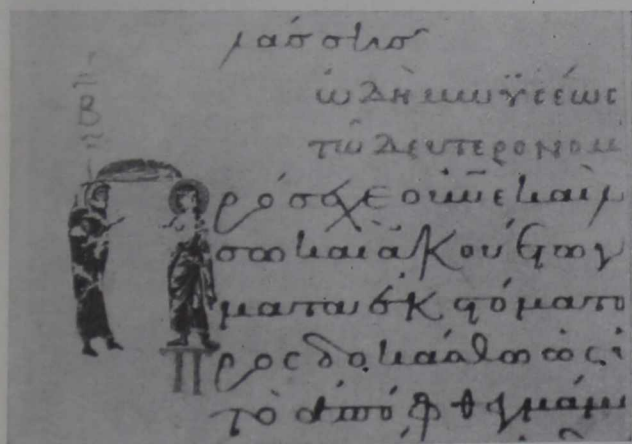 ὠδὴ μωϋσέως
τῶ δευτερονομ
ρόσεχε οὐνὲ καὶ λ
σω καὶ ἀκουέτω γ
ματα ἐκ στόματο
ροσδοκάσθω ὡς
τὸ ἀπόφθεγμά μ